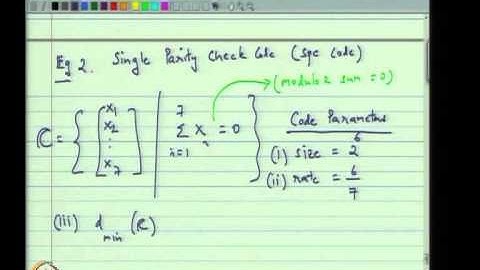 Eg 2. Single Parity Check Code (SPC Code)
(modulo 2 sum = 0)
ℂ = { [x1 x2 : x7] | 7 Σ i=1 xi = 0 }
Code Parameters
(i) size = 2^6
(ii) rate = 6/7
(iii) d min (ℂ)